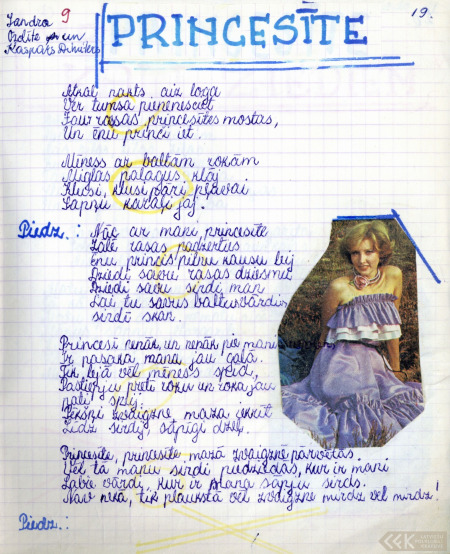 Sandra 9
Ozoliņa un
Kaspars Dimiters
PRINCESĪTE
19.
Atkal nakts aiz loga
Ver tumsa
rasas princesītes mostas,
Un ēnu princi iet.
Mēness ar baltām rokām
Miglas palagus klāj
Klusi, klusi pāri pļavai
Sapņu karaļi jāj.
Piedz.: Nāc ar mani princesīte
Zālē rasas padzerties
Ēnu princis pilnu kausu lej
Dziedi savu rasas dziesmu
Dziedi savu sirdi man
Lai tu savus baltus vārdus
sirdī skan.
Princesīt nenāk, un nenāk pie manis
Ir pasaka mana jau galā.
Tik lejā vēl mēness spīd,
Pastiepju pretī roku un roka jau
spīd.
Pēkšņi zvaigzne maza
Līdz sirdij, dzeļ.
Princesīte, princesīte mazā zvaigznē pārvērtās.
Vēl tā manu sirdi kur ir mani
Labie vārdi, kur ir mana sapņu sirds.
Nav nekā, tik plaukstā vēl zvaigzne mirdz vēl mirdz!
Piedz.: